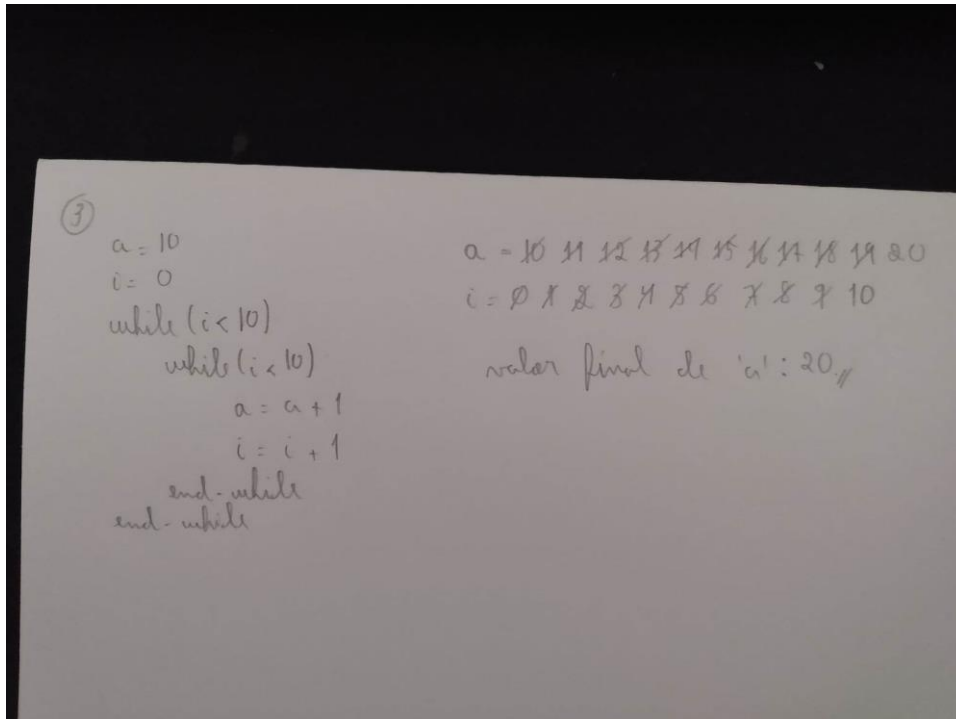 3
a = 10
i = 0
while (i < 10)
while (i < 10)
a = a + 1
i = i + 1
end-while
end-while
a = 10 11 12 13 14 15 16 17 18 19 20
i = 0 1 2 3 4 5 6 7 8 9 10
valor final de 'a': 20